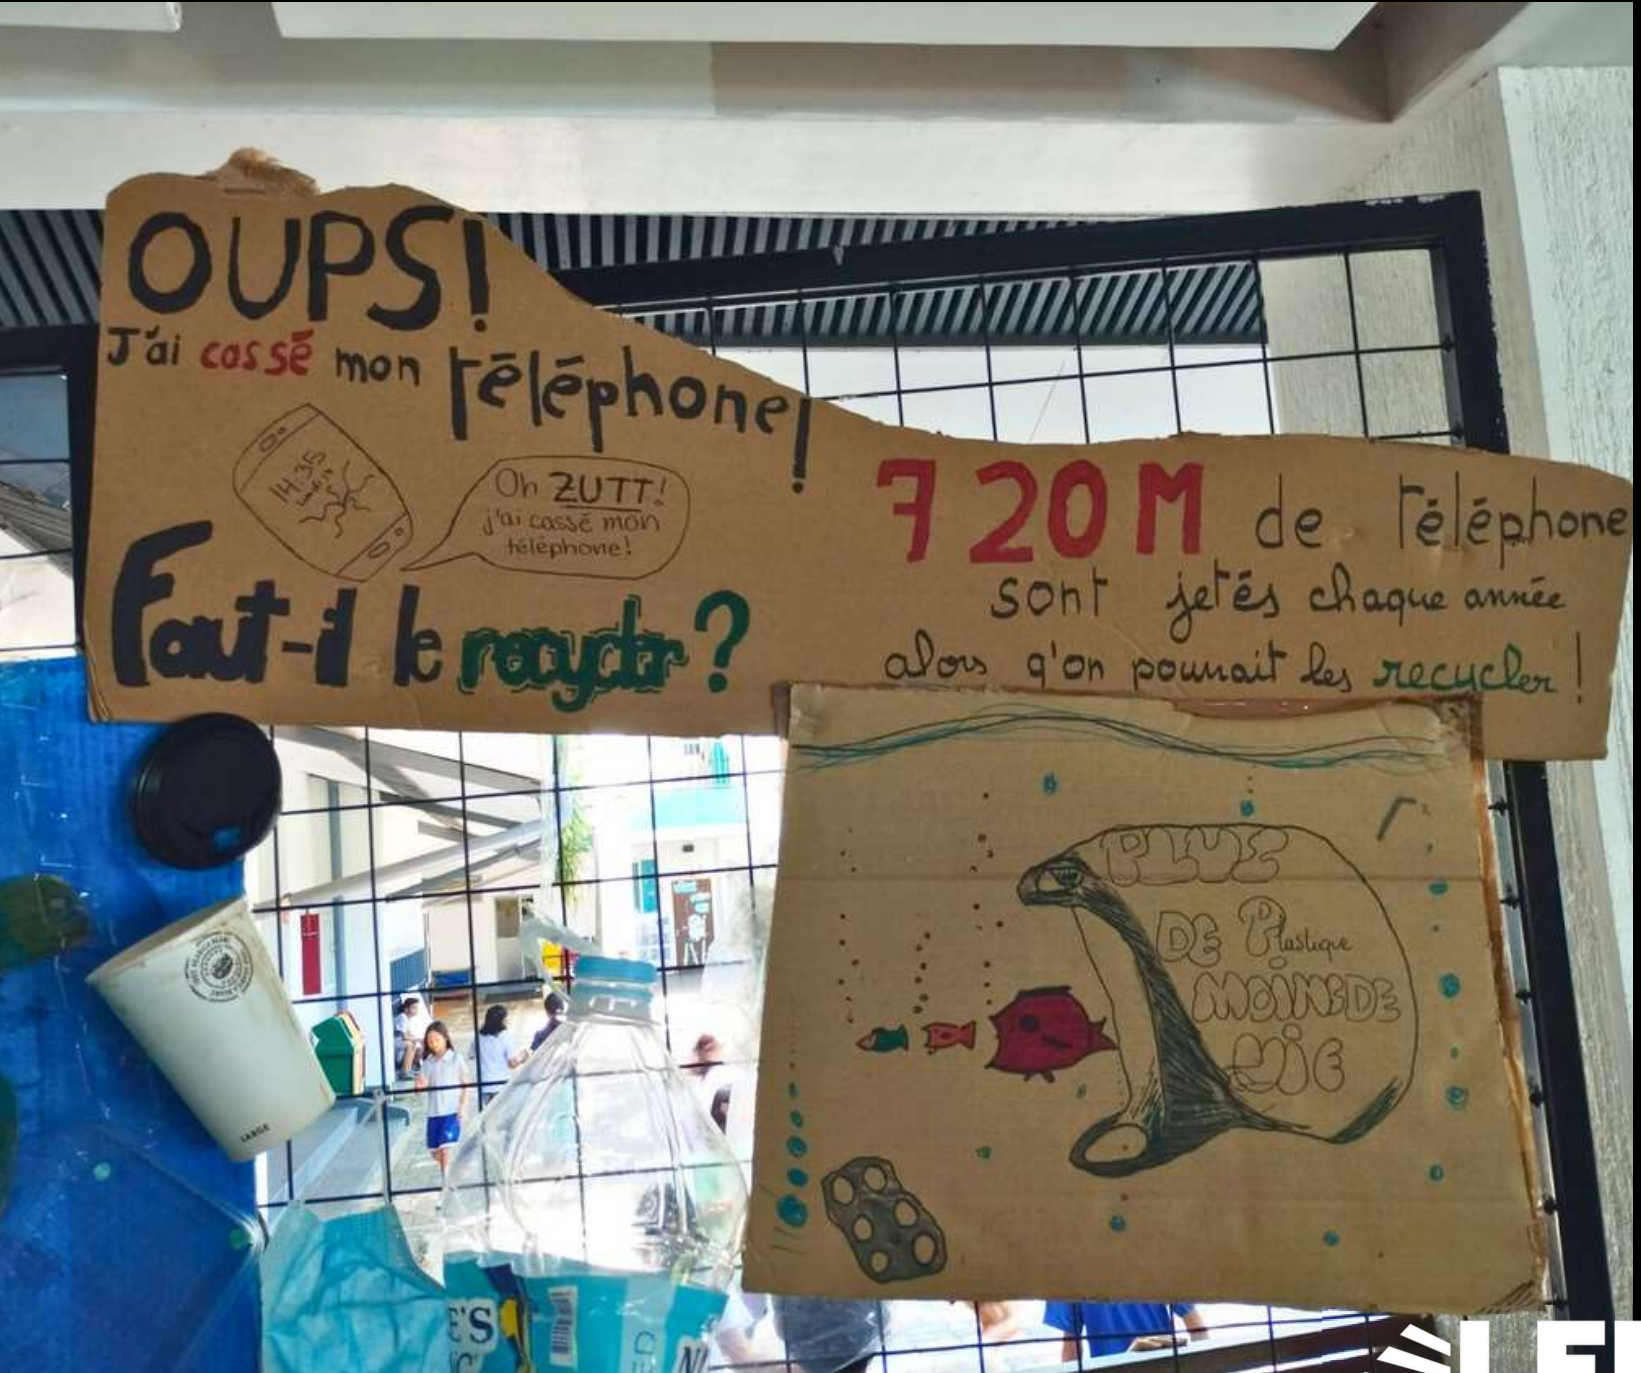 OUPS!
J'ai cassé mon téléphone!
14:35
Oh ZUTT!
j'ai cassé mon
téléphone!
Faut-il le recycler?
720M de téléphone
sont jetés chaque année
alors q'on pourrait les recycler!
PLUS
DE Plastique
MOINS DE
VIE
LARGE
E'S